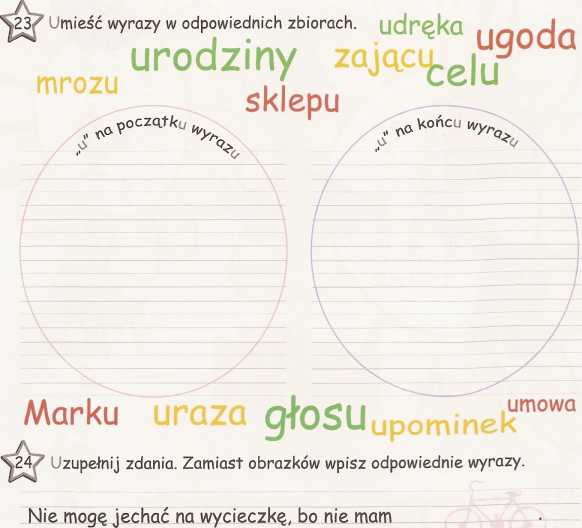 23 Umieść wyrazy w odpowiednich zbiorach.
udręka
ugoda
urodziny
zającu
celu
mrozu
sklepu
„u” na początku wyrazu
„u” na końcu wyrazu
Marku
uraza
głosu
upominek
umowa
24 Uzupełnij zdania. Zamiast obrazków wpisz odpowiednie wyrazy.
Nie mogę jechać na wycieczkę, bo nie mam .